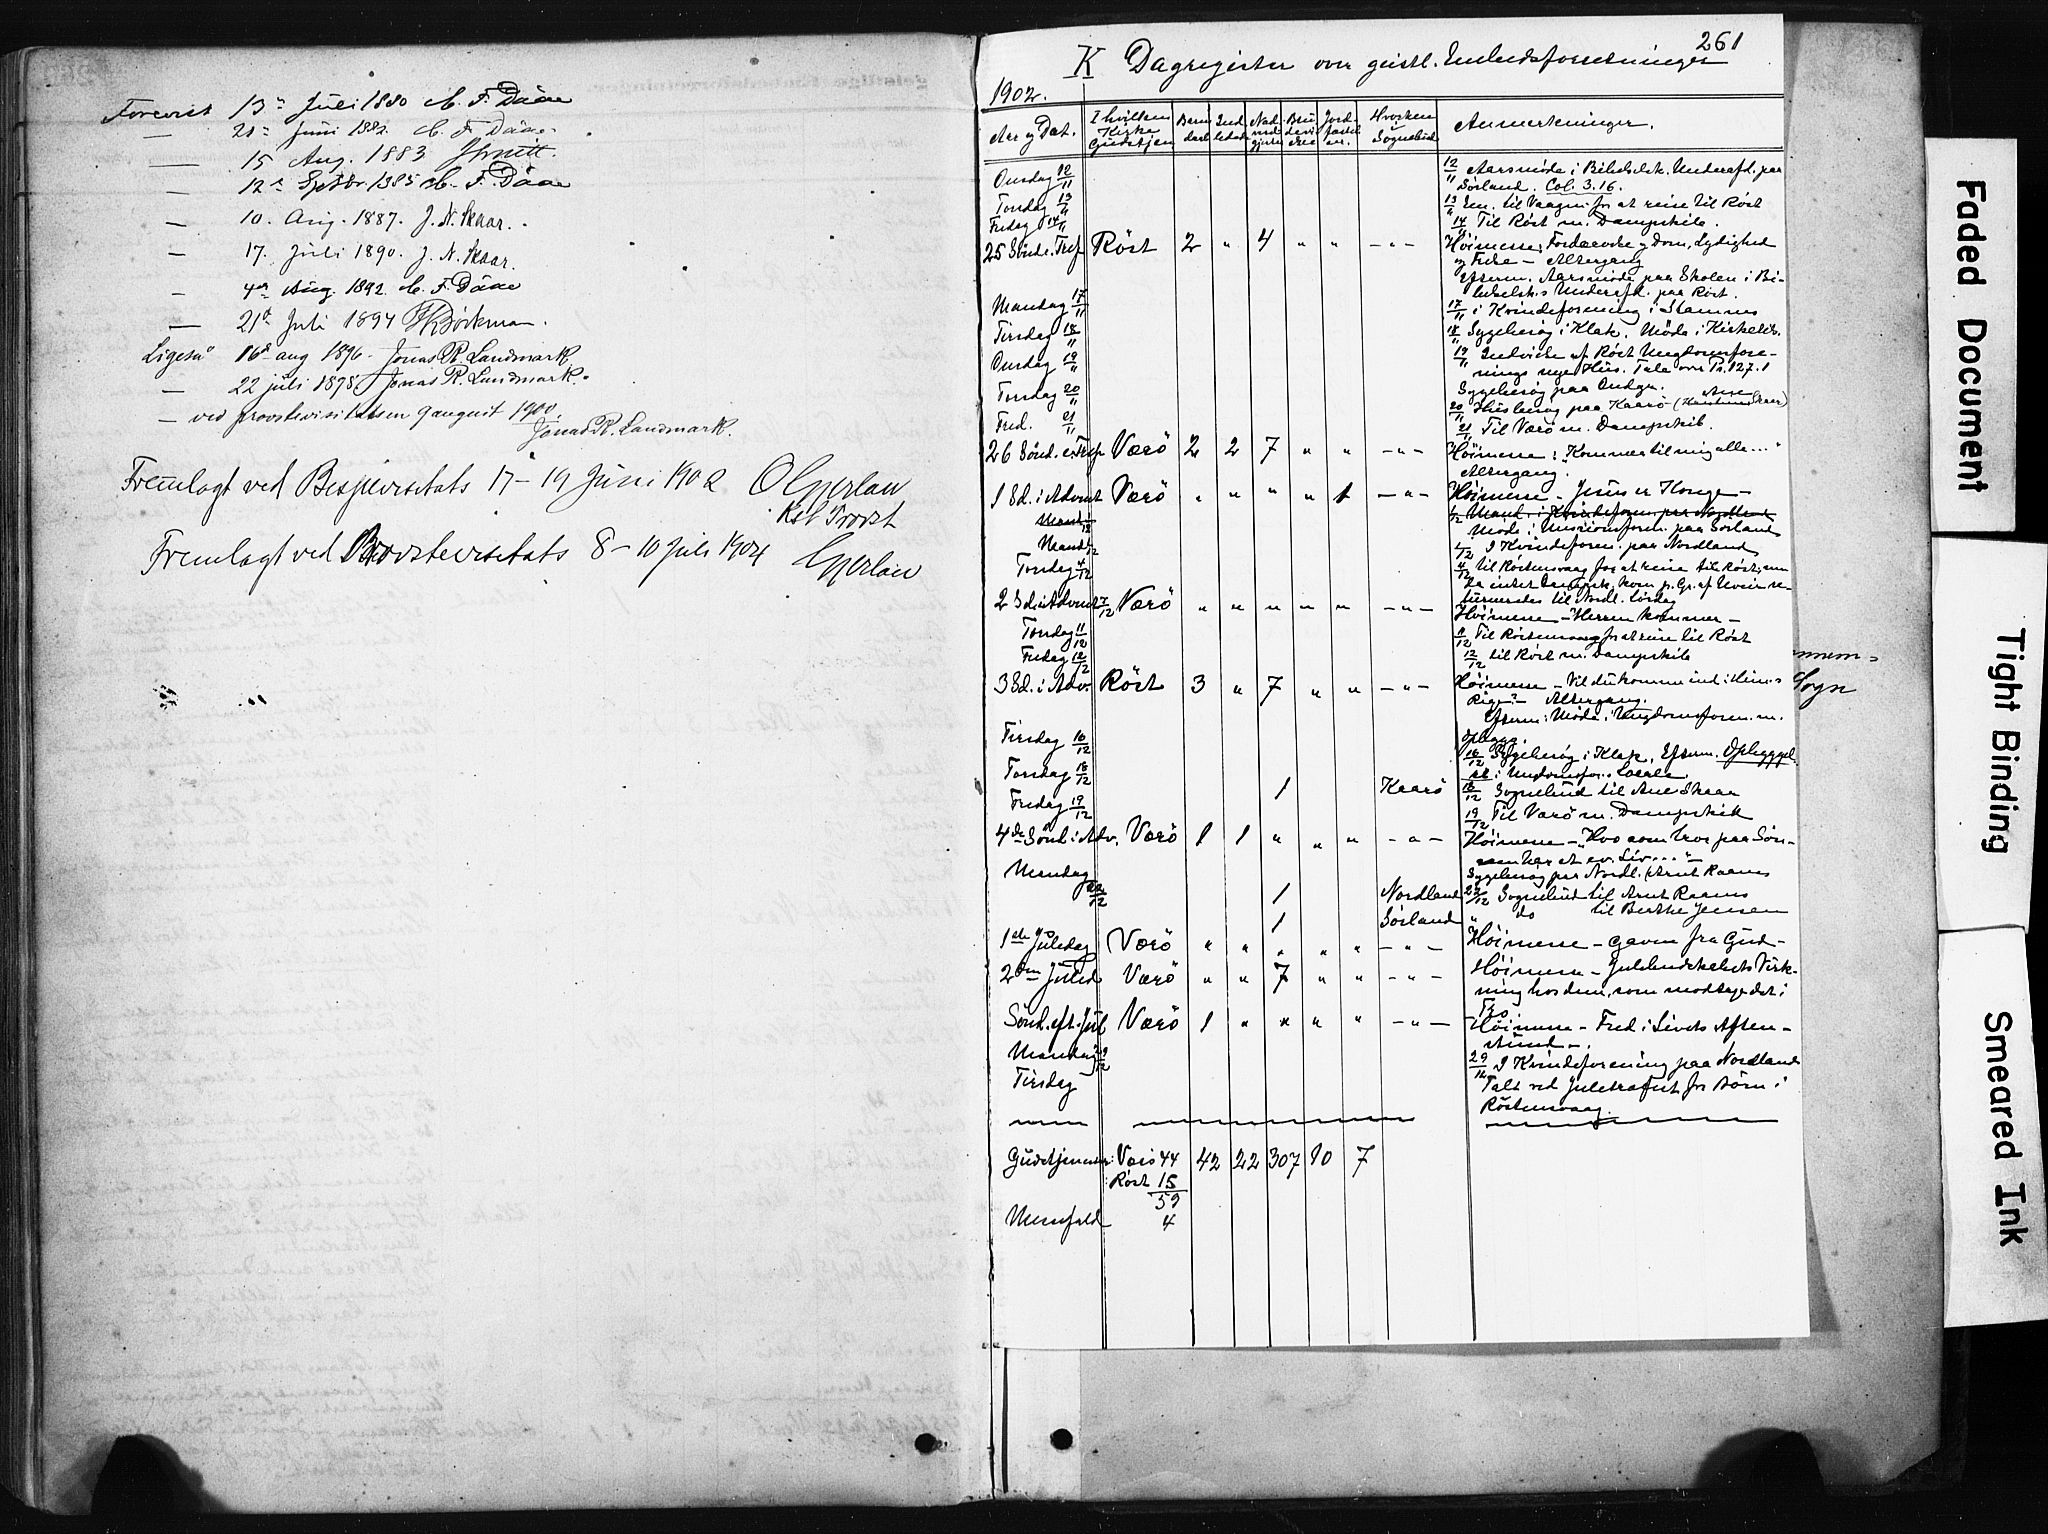 Forevist 13de Juli 1880 C. F. Daae
— 21de Juni 1882. C. F. Daae.
— 15 Aug. 1883
— 12te Septbr. 1885 C. F. Daae
— 10. Aug. 1887. J. N. Skaar.
— 17. Juli 1890. J. N. Skaar.
— 4de Aug. 1892. C. F. Daae
— 21de Juli 1894 Bøckman.
Ligeså 16de aug 1896. Jonas R. Landmark
— 22 juli 1898. Jonas R. Landmark.
— ved provstevisitatsen 9 august 1900.
Jonas R. Landmark.
Fremlagt ved Bispevisitats 17–19 Juni 1902 O Gjerløw
Kst Provst
Fremlagt ved Provstevisitats 8–10 Juli 1904 Gjerløw
261
K Dagregister over geistl. Embedsforretninger
1902.
Aar og Dat. I hvilken Kirke Gudstjen Barn daab Ind ledede Nad verd gjester Bru devi else Jord- fæstel ser. Hvorhen Sognebud Anmerkninger.
Onsdag 12/11 12/11 Aarsmøde i Bibelselsk. Underafd. paa
Sørland. Col. 3.16.
Torsdag 13/11 13/11 Em. til Vaagen for at reise til Røst
Fredag 14/11 14/11 Til Røst m. Dampskib.
25 Sönd. e. Tref Röst 2 " 4 " " – " – Höimesse: Fordærvelse og Dom, Lydighed
og Frelse – Altergang
Efterm. Aarsmøde paa Skolen i Bi-
belselsk.s Underafd. paa Røst.
Mandag 17/11 17/11 i Kvindeforening i Stamnes
Tirsdag 18/11 18/11 Sygebesøg i Klak. Møde i
Onsdag 19/11 19/11 Indvielse af Røst Ungdomsfore-
nings nye Hus. Tale over Ps. 127.1
Sygebesøg paa
Torsdag 20/11 20/11 Husbesøg paa Kaarö (Ane Skaar)
Fred. 21/11 21/11 Til Værö m. Dampskib.
26 Sönd. e. Tref Værö 2 2 7 " " – " – Höimesse: "Kommer til mig alle..."
Altergang.
1 Sd. i Advent Værö " " " " 1 – " – Höimesse – Jesus er Konge –
Mand 1/12 Møde i Missionsforen. paa Sørland
1/12 I Kvindeforen. paa Nordland
Torsdag 4/12 4/12 til Røstensvaag for at reise til Röst, men
da intet Dampsk. kom p. Gr. af Uveir re-
turneredes til Nordl. Lørdag
2 Sd. i Advent 7/12 Værö " " " " " – " – Höimesse – Herren kommer –
Torsdag 11/12 11/12 Til Röstensvaag for at reise til Röst
Fredag 12/12 12/12 til Röst m. Dampskib
3 Sd. i Adv. Röst 3 " 7 " " – " – Höimesse – Vil du komme ind i Himm.s
Rige? – Altergang.
Efterm: Møde i Ungdomsforen. m.
Opbygg.
Tirsdag 16/12 16/12 Sygebesøg i Klak. Efterm. Opbyggel
se i Ungdomsfor.s Locale
Torsdag 18/12 1 Kaarö 18/12 Sognebud til Ane Skaar
Fredag 19/12 19/12 Til Værö m. Dampskib
4de Sönd. i Adv. Værö 1 1 " " " – " – Höimesse – "Hvo som tror paa Søn-
nen har et ev. Liv...." –
Mandag Sygebesøg paa Nordl. (Arnt Raanes
22/12 1 Nordland 22/12 Sognebud til Arnt Raanes
1 Sörland " do til Berthe Jensen
1ste Juledag Værö " " " " " – " – Höimesse – Gaven fra Gud –
2den Juled Værö " " 7 " " – " – Höimesse – Julebudskabets Virk-
ning hos dem, som modtage det i
Tro.
Sönd. eft. Jul Værö 1 " " " " – " – Höimesse – Fred i Livets Aften-
stund –.
Mandag 29/12 29/12 I Kvindeforening paa Nordland
Tirsdag Talt ved Juletræfest for Börn i
Röstensvaag.
Gudstjenester: Værö 44 42 22 307 10 7
Røst 15
59
Messefald 4
Sogn
Faded Document
Tight Binding
Smeared Ink